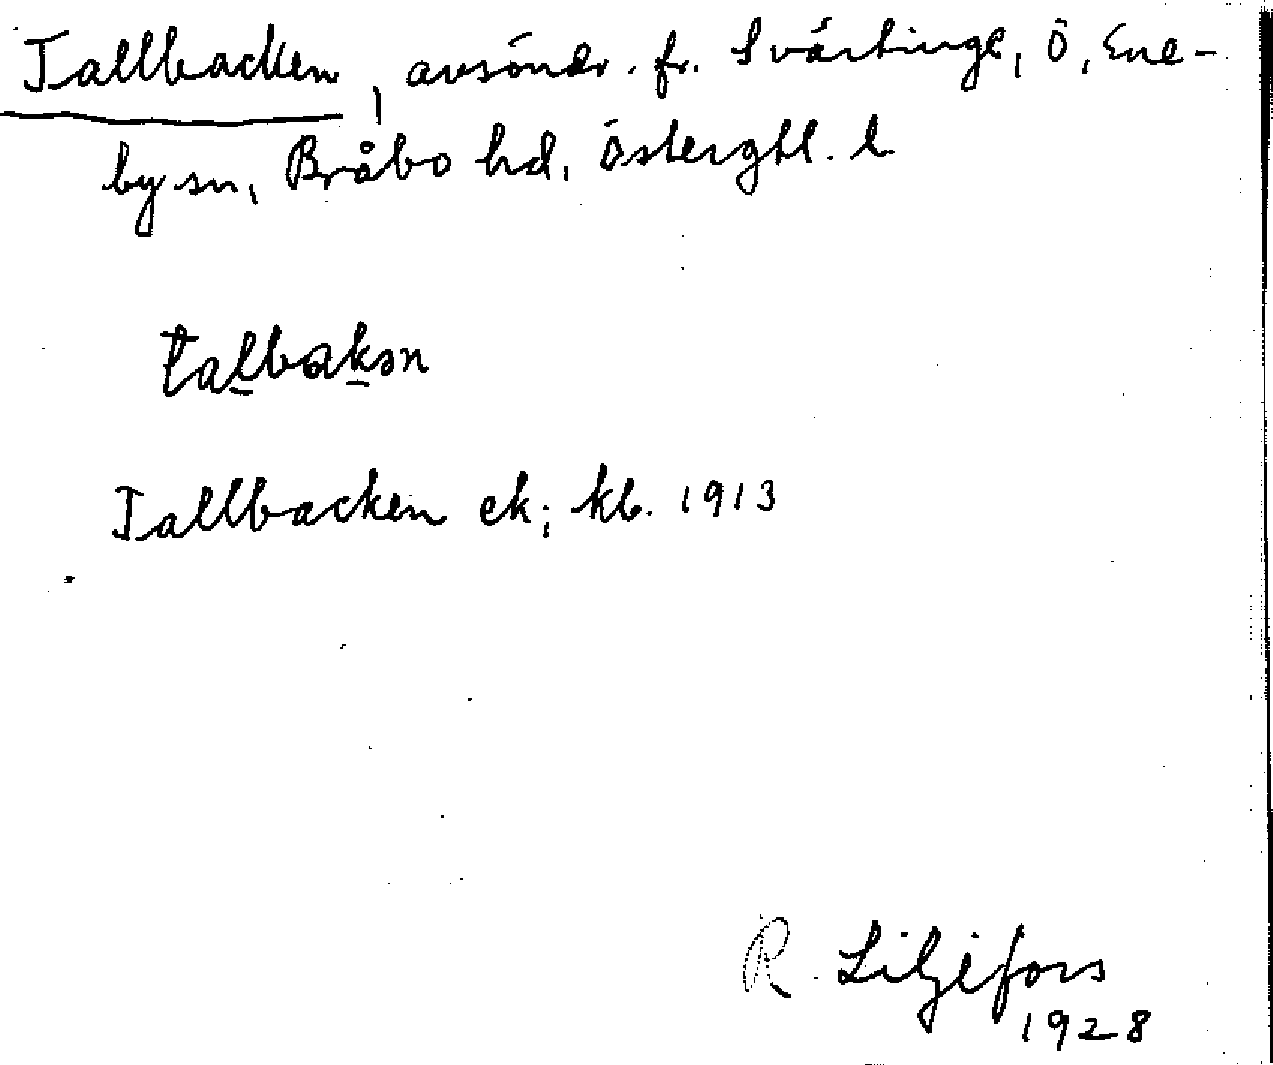 Tallbacken, avsöndr. fr. Svärtinge, Ö. Ene-
by sn, Bråbo hd, Östergtl. l
talbakən
Tallbacken ek; kb. 1913
R. Liljefors
1928